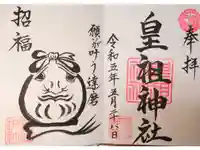 奉拝
皇祖神社
令和五年五月二十八日
願が叶う達磨
招福